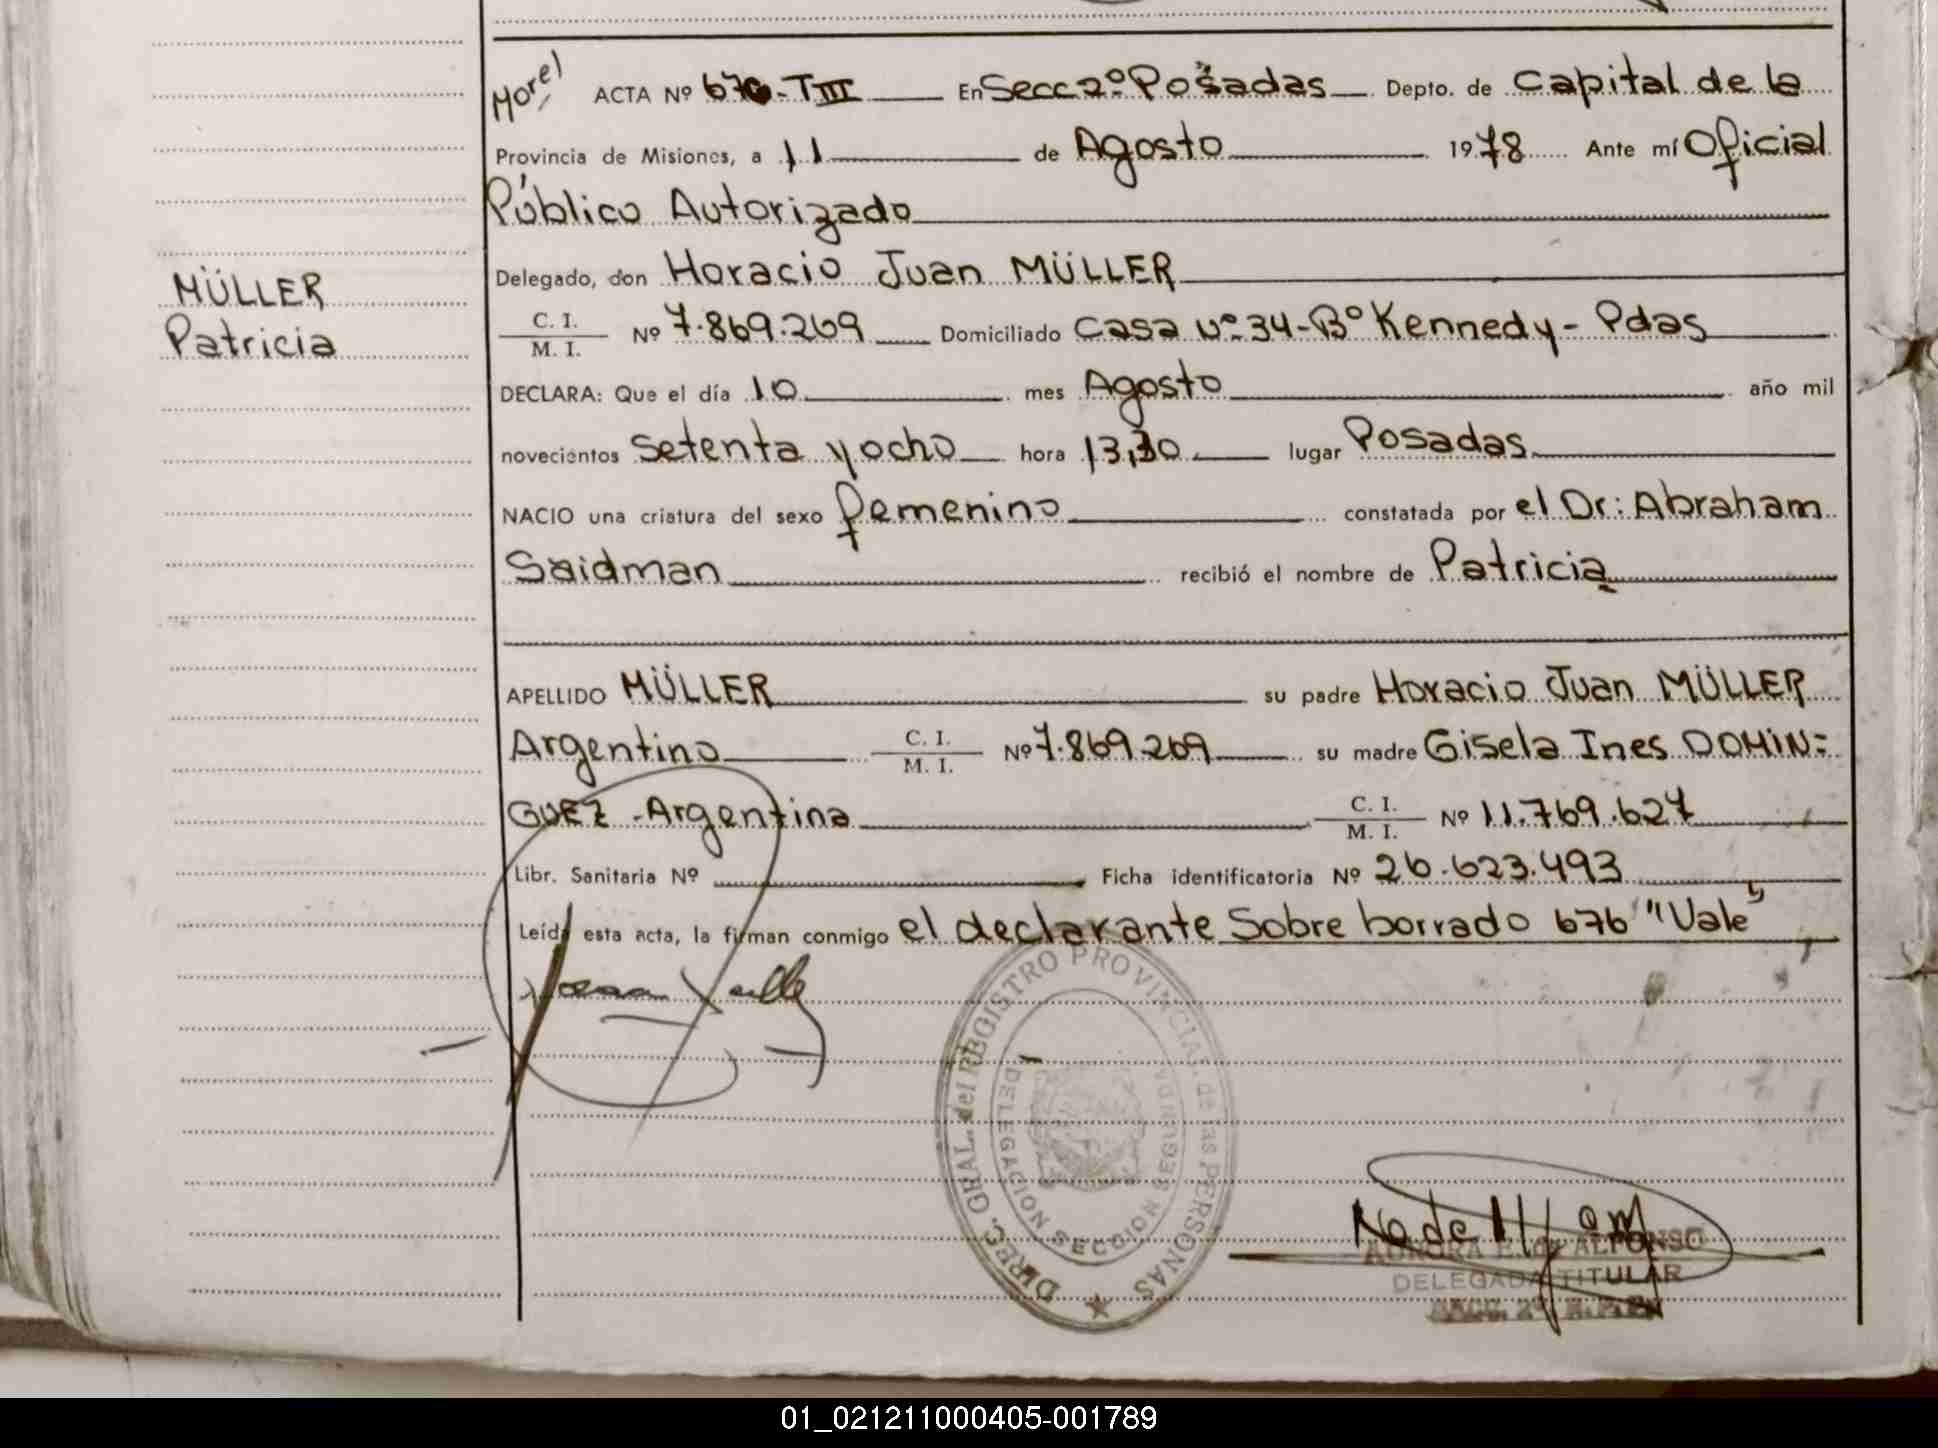 Morel ACTA Nº 676-TIII En Secc 2º Posadas Depto. de Capital de la
Provincia de Misiones, a 11 de Agosto 1978 Ante mí Oficial
Público Autorizado
Delegado, don Horacio Juan MÜLLER
MÜLLER
Patricia
C. I. / M. I. Nº 7.869.269 Domiciliado Casa Nº 34-Bº Kennedy - Pdas
DECLARA: Que el día 10 mes Agosto año mil
novecientos setenta y ocho hora 13,30 lugar Posadas
NACIO una criatura del sexo femenino constatada por el Dr: Abraham
Saidman recibió el nombre de Patricia
APELLIDO MÜLLER su padre Horacio Juan MÜLLER
Argentino C. I. / M. I. Nº 7.869.269 su madre Gisela Ines DOMIN=
GUEZ - Argentina C. I. / M. I. Nº 11.769.627
Libr. Sanitaria Nº Ficha identificatoria Nº 26.623.493
Leída esta acta, la firman conmigo el declarante Sobre borrado 676 "Vale"
DIREC. GRAL. del REGISTRO PROVINCIAL de las PERSONAS
DELEGACION SECCION SEGUNDA
AURORA E. de ALFONSO
DELEGADA TITULAR
SECC. 2º
01_021211000405-001789